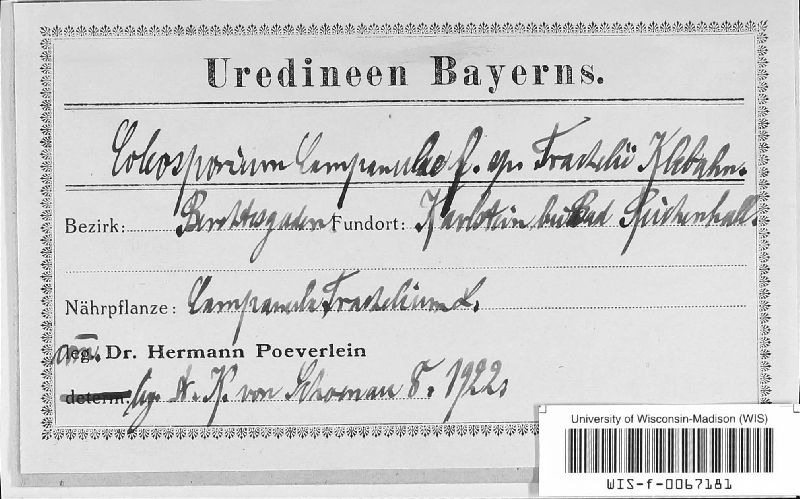 Uredineen Bayerns.
Coleosporium Campanulae f. sp. Trachelii Klebahn.
Bezirk: Berchtesgaden Fundort: Karlstein bei Bad Reichenhall.
Nährpflanze: Campanula Trachelium L.
com. leg. Dr. Hermann Poeverlein
determ. leg. Dr. K. von Schoenau 8. 1922
University of Wisconsin-Madison (WIS)
WIS-f-0067181